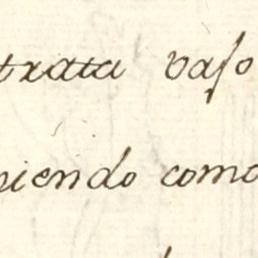 trata vaſo
niendo como